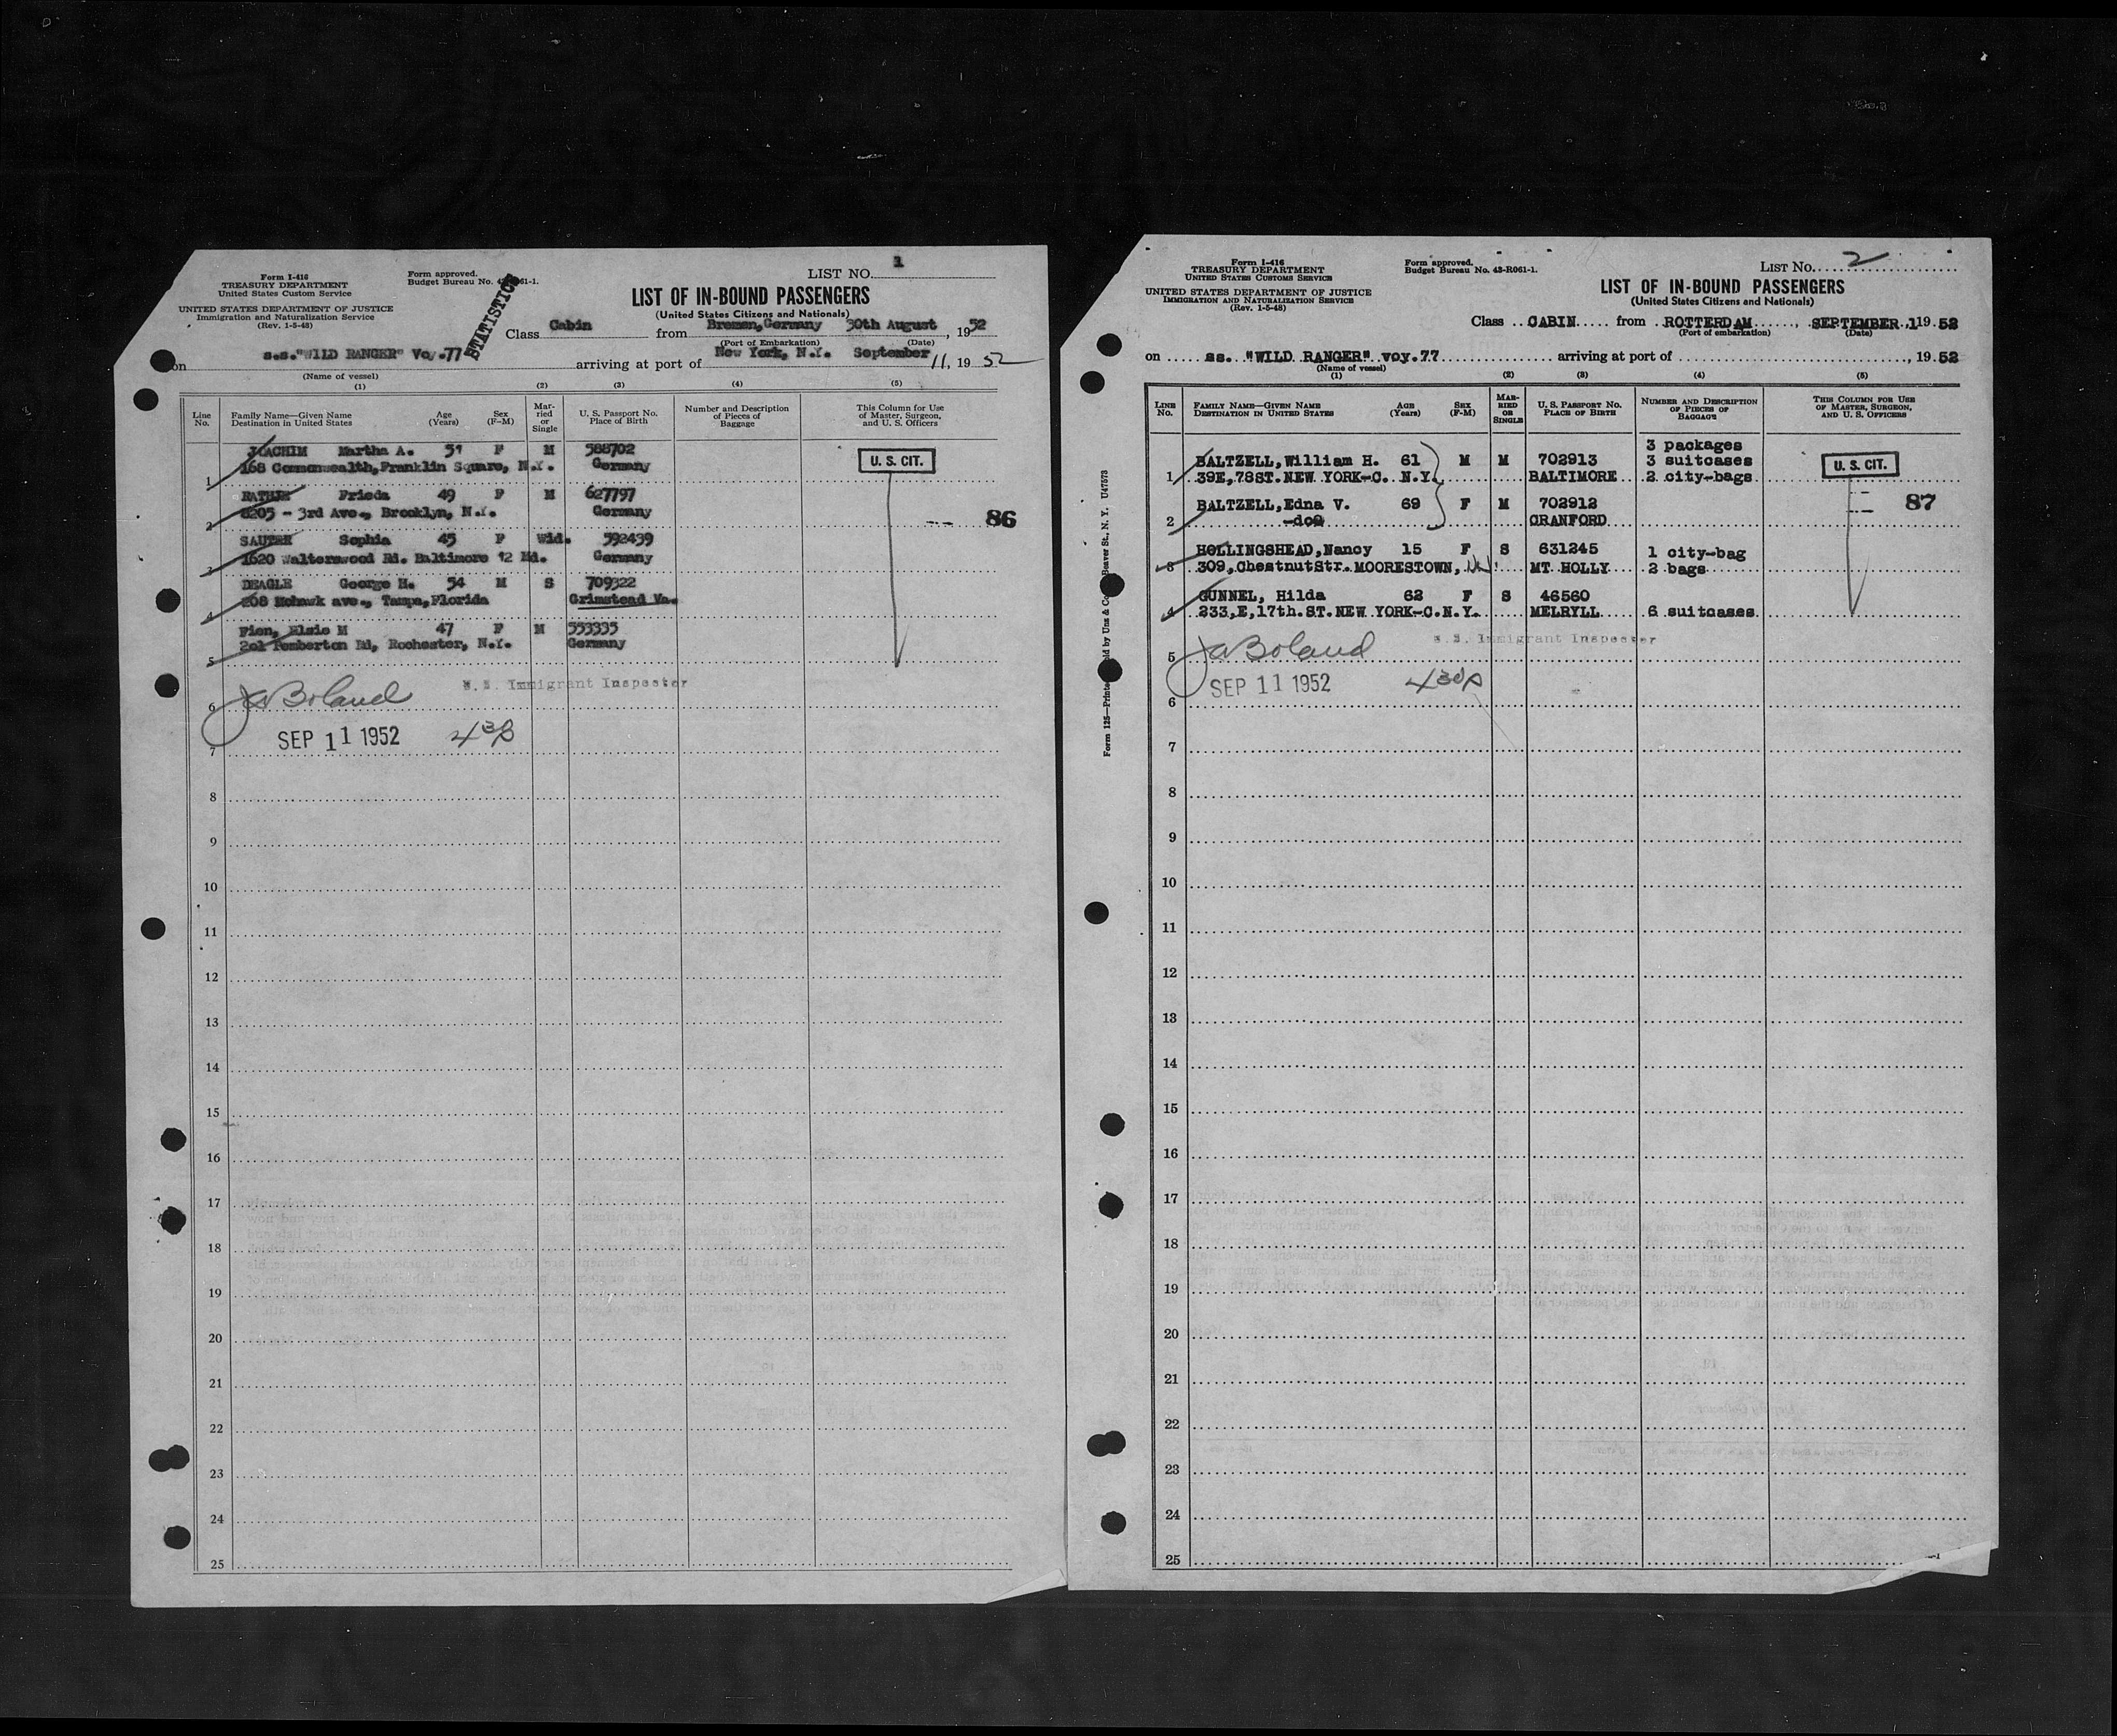 Form I-416
TREASURY DEPARTMENT
United States Custom Service
UNITED STATES DEPARTMENT OF JUSTICE
Immigration and Naturalization Service
(Rev. 1-5-48)
Form approved.
Budget Bureau No. 61-1.
STATISTICS
LIST NO. 1
LIST OF IN-BOUND PASSENGERS
(United States Citizens and Nationals)
Class Cabin from Bremen, Germany 30th August, 1952
(Port of Embarkation) (Date)
on s.s. "WILD RANGER" Voy. 77 arriving at port of New York, N.Y. September 11, 1952
(Name of vessel)
(1) (2) (3) (4) (5)
Line No. Family Name—Given Name Destination in United States Age (Years) Sex (F-M) Married or Single U. S. Passport No. Place of Birth Number and Description of Pieces of Baggage This Column for Use of Master, Surgeon, and U. S. Officers
JOACHIM Martha A. 51 F M 588702
1 168 Commonwealth, Franklin Square, N.Y. Germany
U. S. CIT.
Frieda 49 F M 627797
2 8205 - 3rd Ave., Brooklyn, N.Y. Germany
86
SAUTER Sophia 45 F Wid. 592439
3 1620 Walterswood Rd. Baltimore 12 Md. Germany
DEAGLE George H. 54 M S 709322
4 208 Mohawk ave., Tampa, Florida Grimstead Va.
Fien, Elsie M 47 F M 553335
5 201 Pemberton Rd, Rochester, N.Y. Germany
Boland U. S. Immigrant Inspector
6
SEP 11 1952 4 30 p
7
8
9
10
11
12
13
14
15
16
17
18
19
20
21
22
23
24
25
Form I-416
TREASURY DEPARTMENT
UNITED STATES CUSTOMS SERVICE
UNITED STATES DEPARTMENT OF JUSTICE
IMMIGRATION AND NATURALIZATION SERVICE
(Rev. 1-5-48)
Form approved.
Budget Bureau No. 43-R061-1.
LIST No. 2
LIST OF IN-BOUND PASSENGERS
(United States Citizens and Nationals)
Class CABIN from ROTTERDAM, SEPTEMBER 1 1952
(Port of embarkation) (Date)
on ss. "WILD RANGER" voy. 77 arriving at port of , 1952
(Name of vessel)
(1) (2) (3) (4) (5)
LINE No. FAMILY NAME—GIVEN NAME DESTINATION IN UNITED STATES AGE (Years) SEX (F-M) MARRIED OR SINGLE U. S. PASSPORT NO. PLACE OF BIRTH NUMBER AND DESCRIPTION OF PIECES OF BAGGAGE THIS COLUMN FOR USE OF MASTER, SURGEON, AND U. S. OFFICERS
3 packages
BALTZELL, William H. 61 M M 702913 3 suitcases
1 39E, 78ST. NEW YORK-C. N.Y. BALTIMORE 2 city-bags
U. S. CIT.
BALTZELL, Edna V. 69 F M 702912
87
2 -do- CRANFORD
HOLLINGSHEAD, Nancy 15 F S 631245 1 city-bag
3 309, Chestnut Str. MOORESTOWN, NJ MT. HOLLY 2 bags
GUNNEL, Hilda 62 F S 46560
4 233, E, 17th. ST. NEW YORK-C. N.Y. MELRYLL 6 suitcases
U. S. Immigrant Inspector
5 Boland
SEP 11 1952 4 30 p
6
7
8
9
10
11
12
13
14
15
16
17
18
19
20
21
22
23
24
25
Form 125—Printed by Uns & Co Beaver St., N. Y. U47573